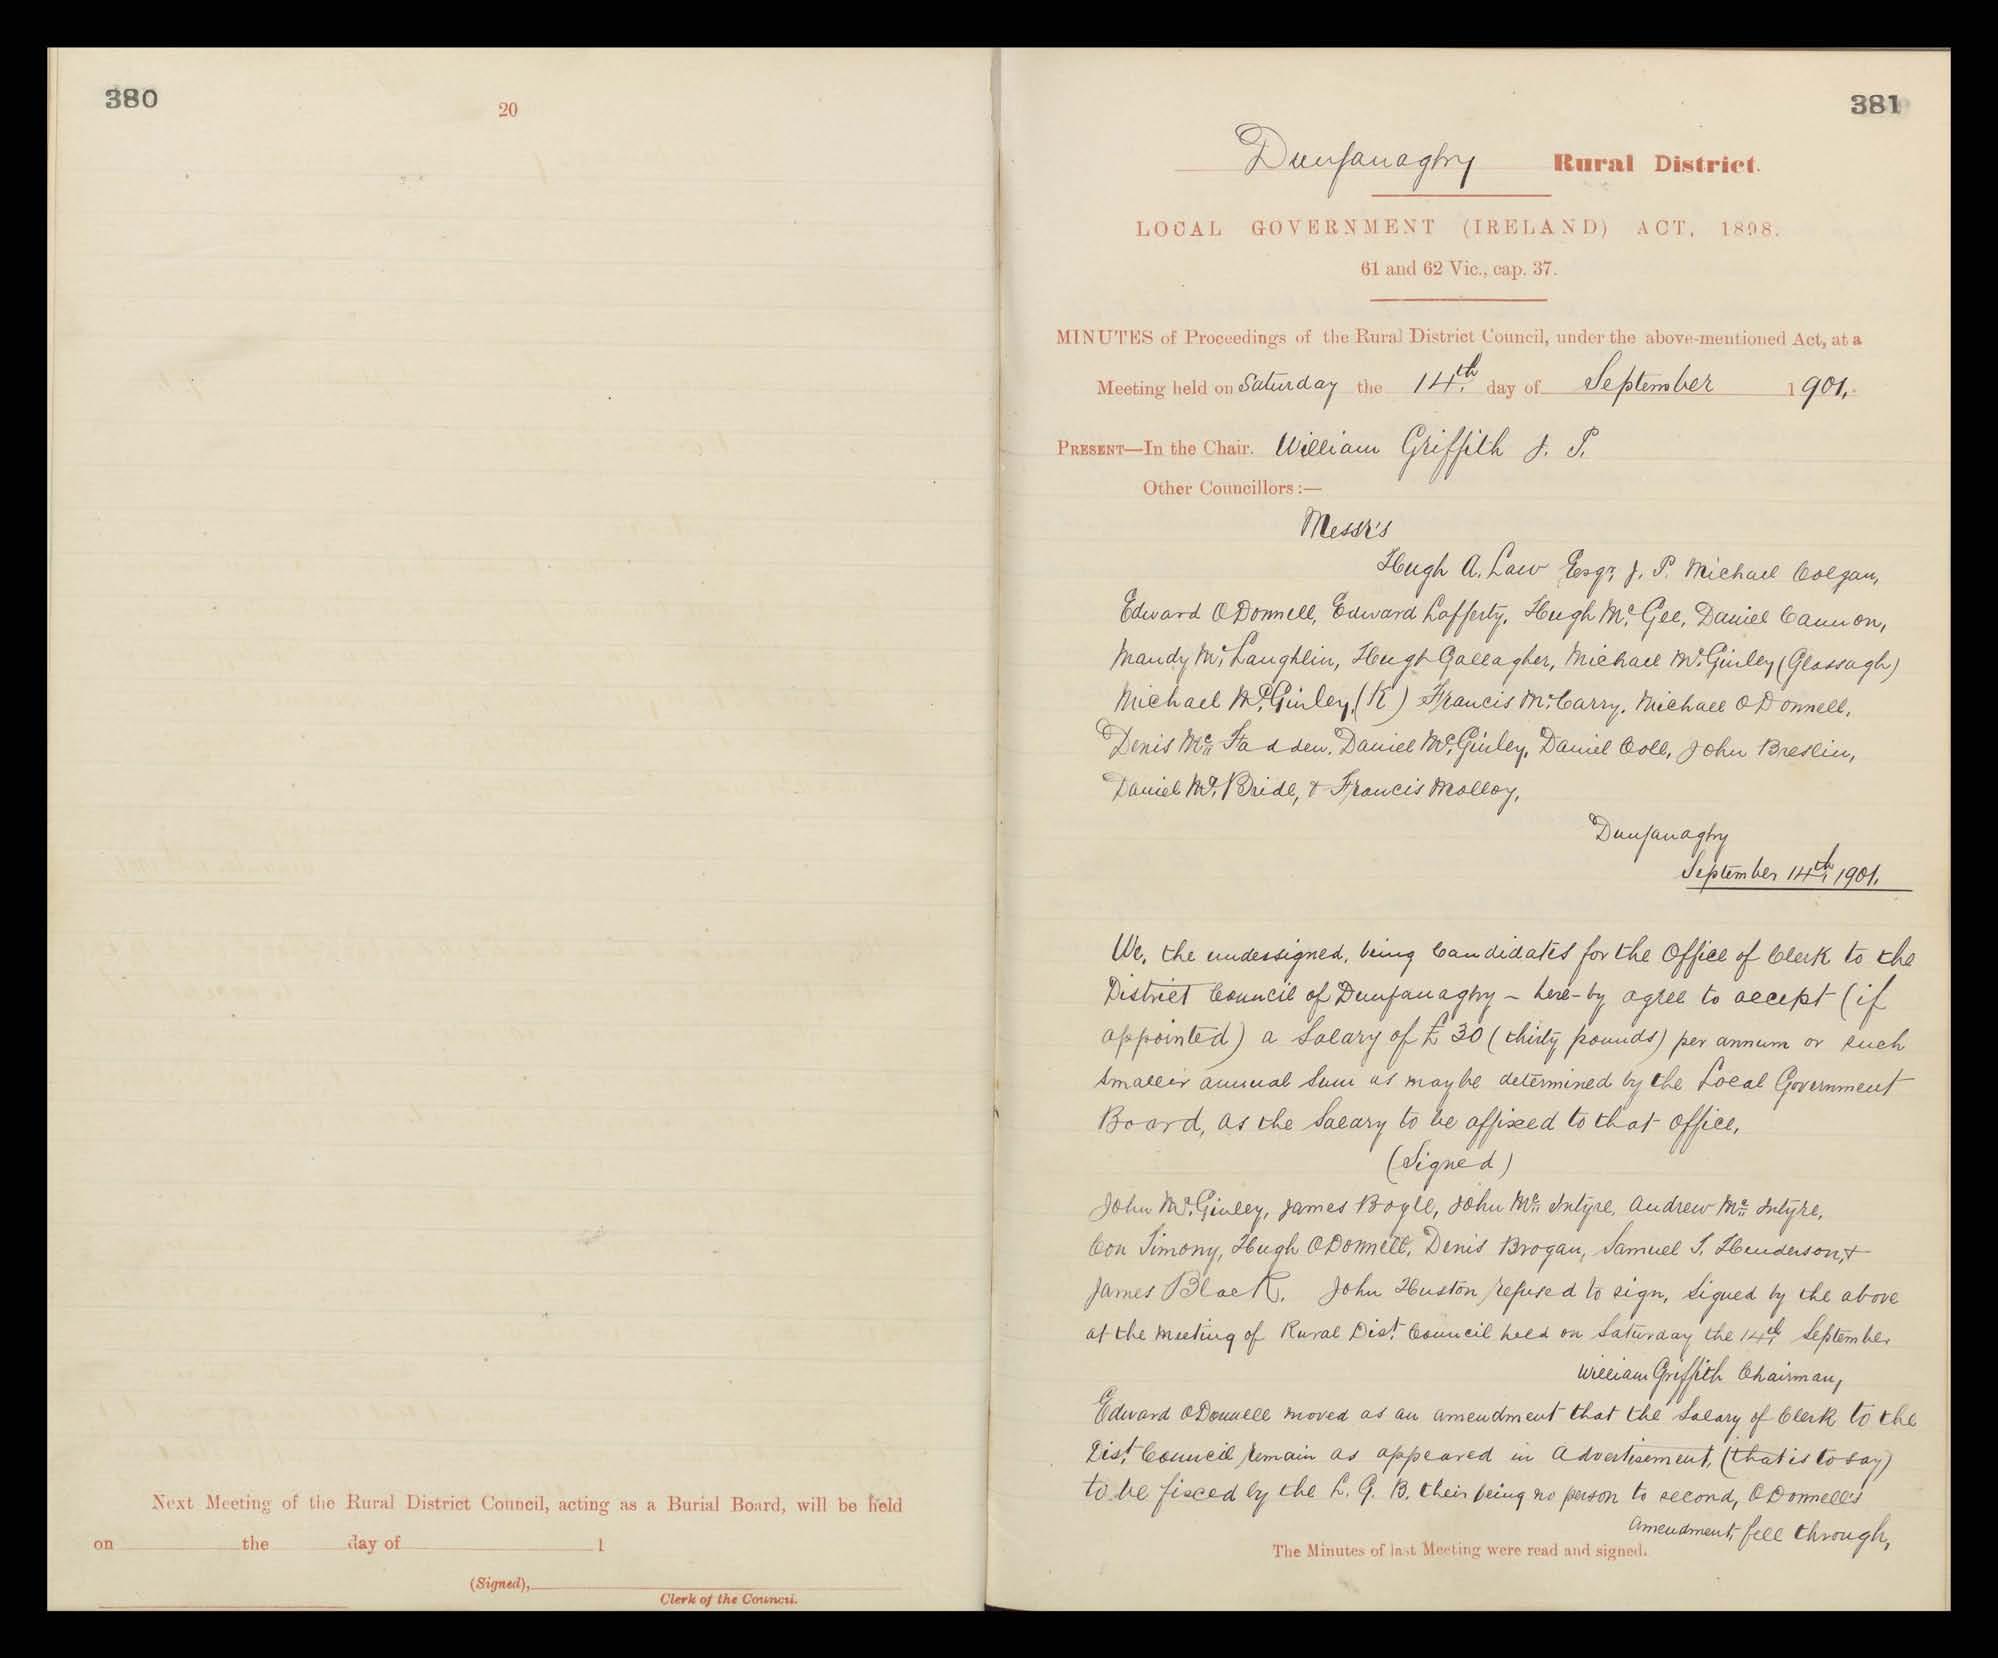 380
20
Next Meeting of the Rural District Council, acting as a Burial Board, will be held
on the day of 1
(Signed),
Clerk of the Council.
381
Dunfanaghy Rural District.
LOCAL GOVERNMENT (IRELAND) ACT, 1898.
61 and 62 Vic., cap. 37.
MINUTES of Proceedings of the Rural District Council, under the above-mentioned Act, at a
Meeting held on Saturday the 14th day of September 1901.
PRESENT—In the Chair. William Griffith J. P.
Other Councillors:—
Messr's
Hugh A. Law Esqr, J. P. Michael Colgan,
Edward O Donnell, Edward Lafferty, Hugh Mc Gee, Daniel Cannon,
Mandy Mc Laughlin, Hugh Gallagher, Michael Mc Ginley (Glassagh)
Michael Mc Ginley, (K) Francis Mc Carry, Michael O Donnell,
Denis Mc Fadden, Daniel Mc Ginley, Daniel Coll, John Breslin,
Daniel Mc Bride, & Francis Molloy,
Dunfanaghy
September 14th 1901.
We, the undersigned, being Candidates for the Office of Clerk to the
District Council of Dunfanaghy - here-by agree to accept (if
appointed) a Salary of £30 (thirty pounds) per annum or such
smaller annual Sum as may be determined by the Local Government
Board, as the Salary to be affixed to that office,
(Signed)
John Mc Ginley, James Boyle, John Mc Intyre, Andrew Mc Intyre,
Con Timony, Hugh O Donnell, Denis Brogan, Samuel S. Henderson, &
James Black. John Huston refused to sign, Signed by the above
at the meeting of Rural Dist. Council held on Saturday the 14th September
William Griffith Chairman,
Edward O Donnell moved as an amendment that the Salary of Clerk to the
Dist. Council remain as appeared in Advertisement, (that is to say)
to be fixed by the L. G. B. their being no person to second, O Donnell's
amendment, fell through,
The Minutes of last Meeting were read and signed.